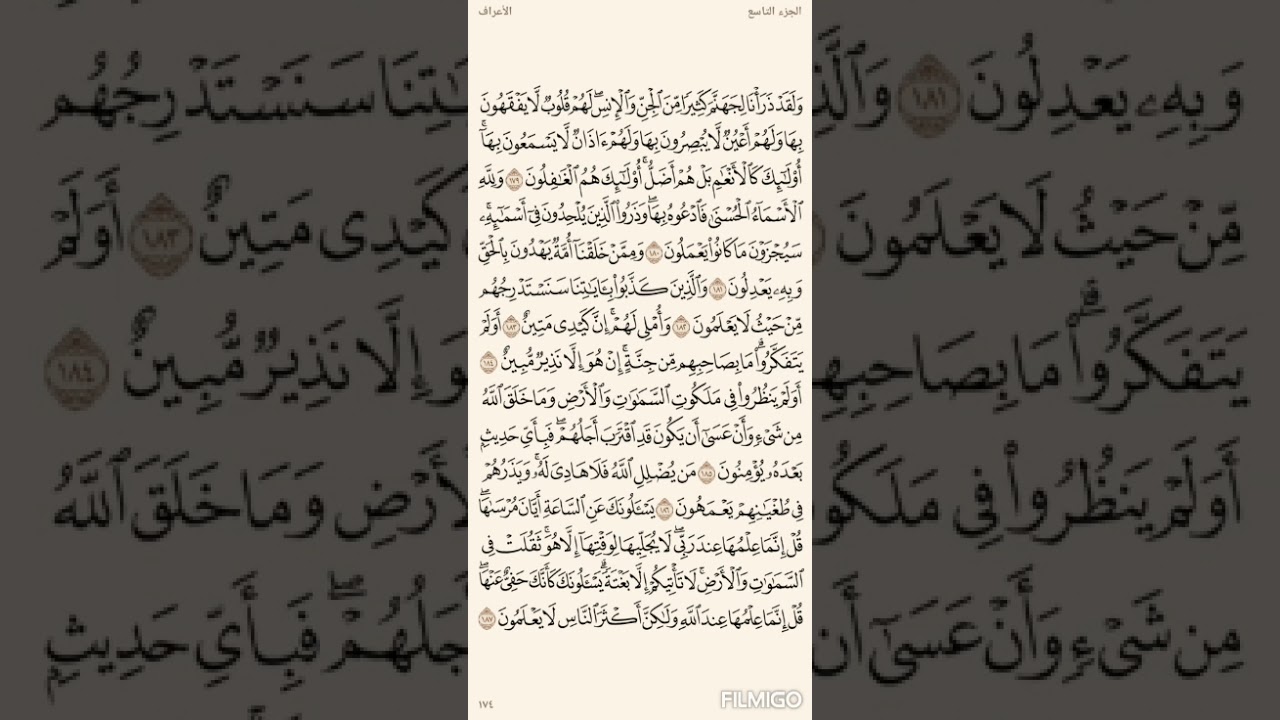 الأعراف
الجزء التاسع
وَلَقَدْ ذَرَأْنَا لِجَهَنَّمَ كَثِيرًا مِّنَ ٱلْجِنِّ وَٱلْإِنسِۖ لَهُمْ قُلُوبٌ لَّا يَفْقَهُونَ
بِهَا وَلَهُمْ أَعْيُنٌ لَّا يُبْصِرُونَ بِهَا وَلَهُمْ ءَاذَانٌ لَّا يَسْمَعُونَ بِهَآۚ
أُو۟لَٰٓئِكَ كَٱلْأَنْعَٰمِ بَلْ هُمْ أَضَلُّۚ أُو۟لَٰٓئِكَ هُمُ ٱلْغَٰفِلُونَ ١٧٩ وَلِلَّهِ
ٱلْأَسْمَآءُ ٱلْحُسْنَىٰ فَٱدْعُوهُ بِهَاۖ وَذَرُوا۟ ٱلَّذِينَ يُلْحِدُونَ فِىٓ أَسْمَٰٓئِهِۦۚ
سَيُجْزَوْنَ مَا كَانُوا۟ يَعْمَلُونَ ١٨٠ وَمِمَّنْ خَلَقْنَآ أُمَّةٌ يَهْدُونَ بِٱلْحَقِّ
وَبِهِۦ يَعْدِلُونَ ١٨١ وَٱلَّذِينَ كَذَّبُوا۟ بِـَٔايَٰتِنَا سَنَسْتَدْرِجُهُم
مِّنْ حَيْثُ لَا يَعْلَمُونَ ١٨٢ وَأُمْلِى لَهُمْۚ إِنَّ كَيْدِى مَتِينٌ ١٨٣ أَوَلَمْ
يَتَفَكَّرُوا۟ۗ مَا بِصَاحِبِهِم مِّن جِنَّةٍۚ إِنْ هُوَ إِلَّا نَذِيرٌ مُّبِينٌ ١٨٤
أَوَلَمْ يَنظُرُوا۟ فِى مَلَكُوتِ ٱلسَّمَٰوَٰتِ وَٱلْأَرْضِ وَمَا خَلَقَ ٱللَّهُ
مِن شَىْءٍ وَأَنْ عَسَىٰٓ أَن يَكُونَ قَدِ ٱقْتَرَبَ أَجَلُهُمْۖ فَبِأَىِّ حَدِيثٍۭ
بَعْدَهُۥ يُؤْمِنُونَ ١٨٥ مَن يُضْلِلِ ٱللَّهُ فَلَا هَادِىَ لَهُۥۚ وَيَذَرُهُمْ
فِى طُغْيَٰنِهِمْ يَعْمَهُونَ ١٨٦ يَسْـَٔلُونَكَ عَنِ ٱلسَّاعَةِ أَيَّانَ مُرْسَىٰهَاۖ
قُلْ إِنَّمَا عِلْمُهَا عِندَ رَبِّىۖ لَا يُجَلِّيهَا لِوَقْتِهَآ إِلَّا هُوَۚ ثَقُلَتْ فِى
ٱلسَّمَٰوَٰتِ وَٱلْأَرْضِۚ لَا تَأْتِيكُمْ إِلَّا بَغْتَةًۗ يَسْـَٔلُونَكَ كَأَنَّكَ حَفِىٌّ عَنْهَاۖ
قُلْ إِنَّمَا عِلْمُهَا عِندَ ٱللَّهِ وَلَٰكِنَّ أَكْثَرَ ٱلنَّاسِ لَا يَعْلَمُونَ ١٨٧
١٧٤
FILMIGO